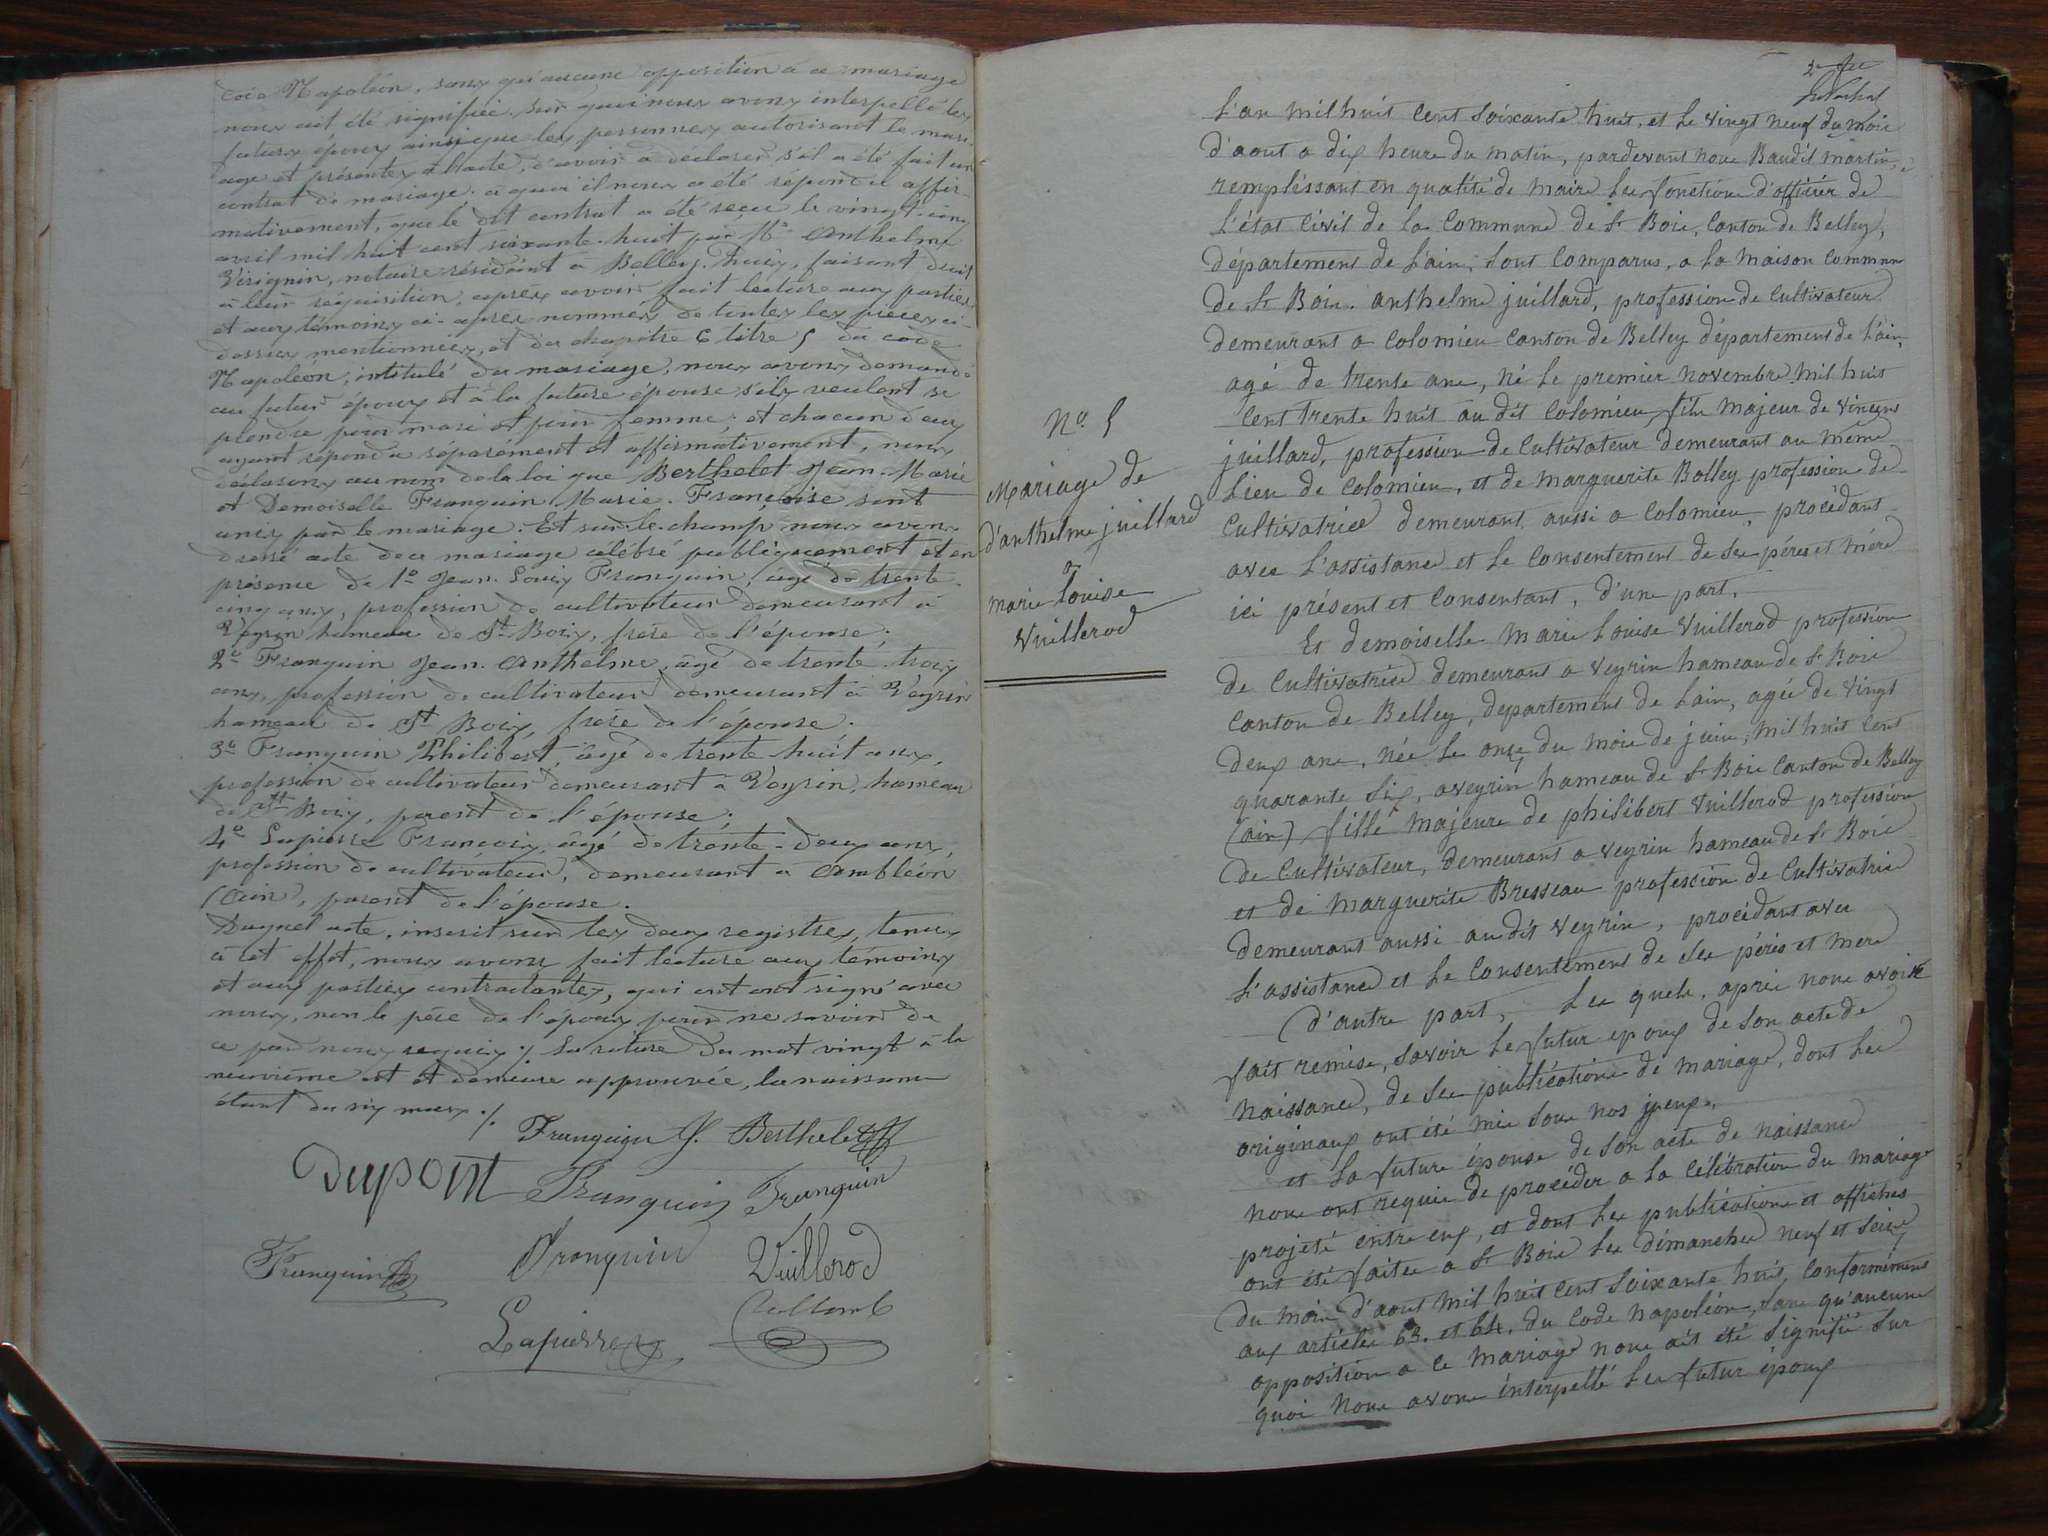 code Napoléon, sans qu'aucune opposition à ce mariage
nous ait été signifiée. Sur quoi nous avons interpellé les
futurs époux ainsi que les personnes autorisant le mari
age et présentes à l'acte, d'avoir à déclarer s'il a été fait un
contrat de mariage; à quoi il nous a été répondu affir-
mativement, que le dit contrat a été reçu le vingt-cinq
avril mil huit cent soixante-huit par Me Anthelme
notaire résidant à Belley. Puis, faisant droit
à leur réquisition, après avoir fait lecture aux parties
et aux témoins ci-après nommés de toutes les pièces ci-
dessus mentionnées, et du chapitre 6 titre 5 du code
Napoléon, intitulé du mariage, nous avons demandé
au futur époux et à la future épouse s'ils veulent se
plendre pour mari et pour femme; et chacun d'eux
ayant répondu séparément et affirmativement, nous
déclarons au nom de la loi que Berthelet Jean-Marie
et Demoiselle Franquin Marie-Françoise sont
unis par le mariage. Et sur-le-champ nous avons
dressé acte de ce mariage célébré publiquement et en
présence de 1º Jean-Louis Franquin, âgé de trente-
cinq ans, profession de cultivateur demeurant à
Veyrin hameau de St Bois, frère de l'épouse;
2º Franquin Jean-Anthelme, âgé de trente-trois
ans, profession de cultivateur demeurant à Veyrin
hameau de St Bois, frère de l'épouse.
3º Franquin Philibert, âgé de trente huit ans,
profession de cultivateur demeurant à Veyrin, hameau
de St Bois, parent de l'épouse;
4º Lapierre François, âgé de trente-deux ans,
profession de cultivateur, demeurant à Ambléon
(Ain), parent de l'épouse.
Duquel acte, inscrit sur les deux registres, tenus
à cet effet, nous avons fait lecture aux témoins
et aux parties contractantes, qui ont signé avec
nous, non le père de l'époux pour ne savoir de
ce par nous requis ./. La rature du mot vingt à la
neuvième est et demeure approuvée, la naissance
étant du six mars ./.
Franquin J. Berthelet
Dupont Franquin Franquin
Franquin Franquin Vuillerod
Lapierre Collomb
Nº 5
Mariage de
d'anthelme juillard
et
marie Louise
Vuillerod
2e feu
L'an mil huit cent soixante huit, et le vingt neuf du mois
d'aout a dix heure du matin, pardevant nous Baudit martin
remplissant en qualité de maire les fonctions d'officier de
L'état civil de la commune de St Bois, canton de Belley,
département de L'ain, sont comparus, a la maison commune
de St Bois. anthelme juillard, profession de cultivateur
demeurant a colomieu canton de Belley département de L'ain,
agé de trente ans, né le premier novembre mil huit
cent trente huit au dit colomieu, fils majeur de vincent
juillard, profession de cultivateur demeurant au même
Lieu de colomieu, et de marguerite Bolley profession de
cultivatrice demeurant aussi a colomieu, procédant
avec L'assistance et le consentement de ses pères et mère
ici présent et consentant, d'une part.
Et demoiselle marie Louise Vuillerod profession
de cultivatrice demeurant a veyrin hameau de St Bois
canton de Belley, departement de L'ain, agée de vingt
deux ans, née le onze du mois de juin, mil huit cent
quarante six, a veyrin hameau de St Bois canton de Belley
(ain) fille majeure de philibert Vuillerod profession
de cultivateur, demeurant a veyrin hameau de St Bois
et de marguerite Bresseau profession de cultivatrice
demeurant aussi au dit veyrin, procédant avec
L'assistance et le consentement de ses pères et mere
d'autre part, Les quels, après nous avoir
fait remise, savoir le futur epoux de son acte de
naissance, de ses publications de mariage, dont les
originaux ont été mis sous nos yeux.
et la future épouse de son acte de naissance
nous ont requis de procéder a la célébration du mariage
projeté entre eux, et dont les publications et affiches
ont été faites a St Bois les dimanches neuf et seize
du mois d'aout mil huit cent soixante huit, conformément
aux articles 63. et 64. du code napoléon, sans qu'aucune
opposition a ce mariage nous ait été signifié sur
quoi nous avons interpellé les futur époux